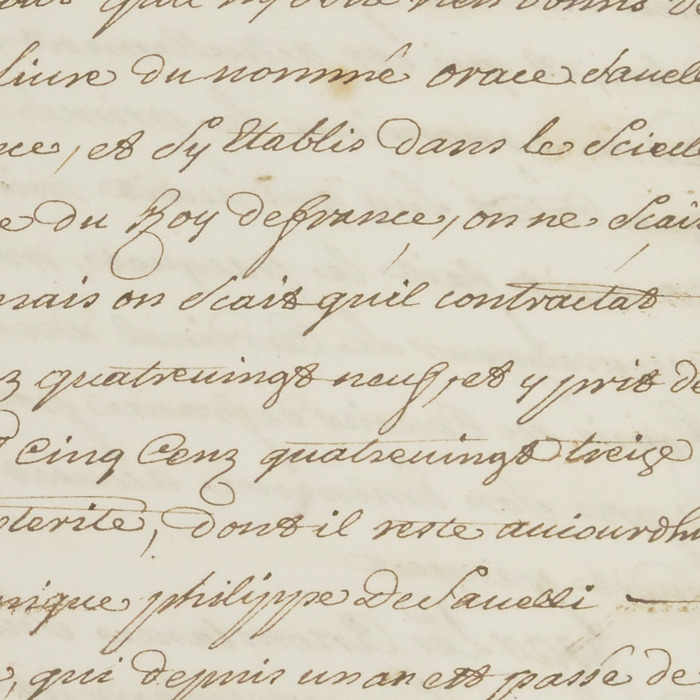 livre du nommé orace Sauell
ce, et sy Etablis dans le Sciecl
e du Roy defrance, on ne Scais
mais on scait quil contractat
z quatreuingt neuf, et y prit d
cinq Cenz quatreuingt treize
sterite, dont il reste auiourdhu
nique philippe De Sauelli
, qui depuis un an est passé de